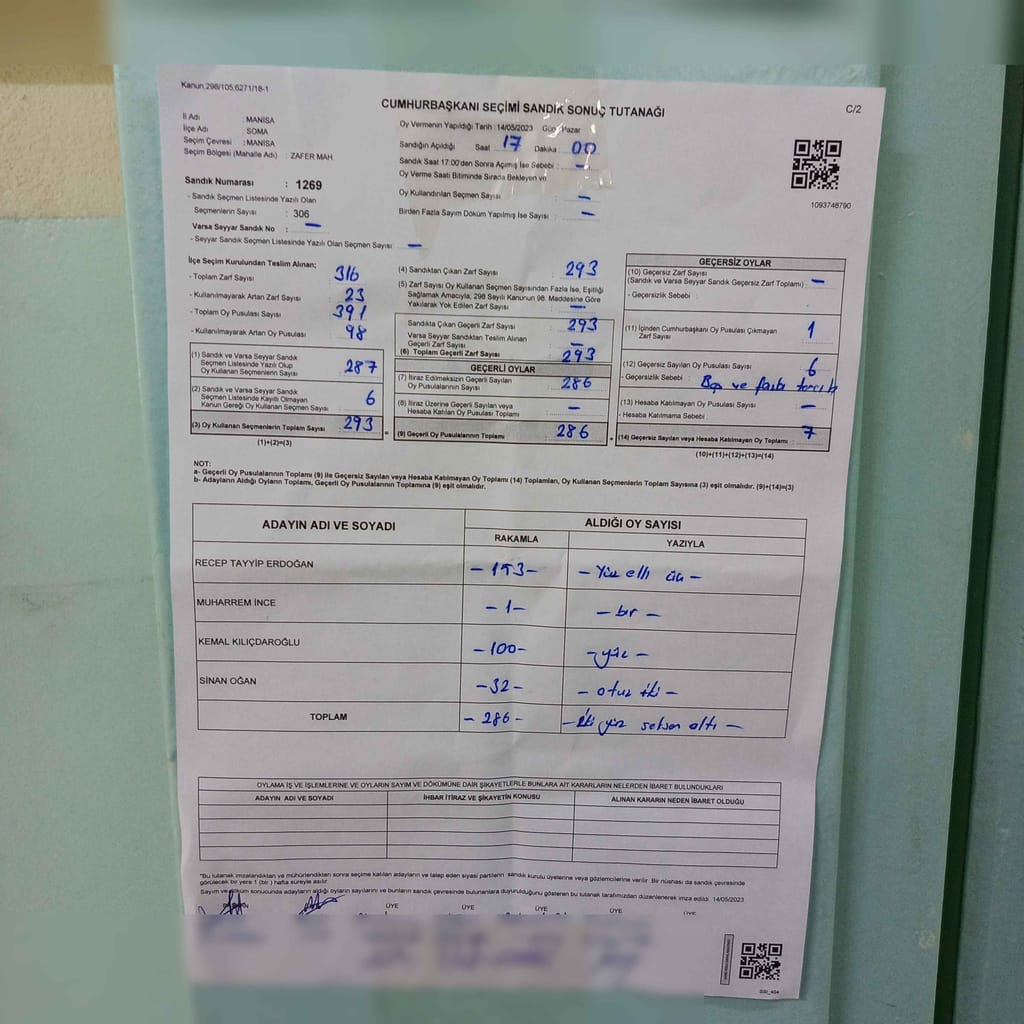 Kanun.298/105;6271/18-1
CUMHURBAŞKANI SEÇİMİ SANDIK SONUÇ TUTANAĞI
C/2
İl Adı : MANİSA
İlçe Adı : SOMA
Seçim Çevresi : MANİSA
Seçim Bölgesi (Mahalle Adı) : ZAFER MAH
Oy Vermenin Yapıldığı Tarih : 14/05/2023 Gün Pazar
Sandığın Açıldığı Saat 17 Dakika 00
Sandık Saat 17:00'den Sonra Açmış İse Sebebi : –
Oy Verme Saati Bitiminde Sırada Bekleyen ve
Oy Kullandırılan Seçmen Sayısı –
Birden Fazla Sayım Döküm Yapılmış İse Sayısı : –
1093748790
Sandık Numarası : 1269
- Sandık Seçmen Listesinde Yazılı Olan
Seçmenlerin Sayısı : 306
Varsa Seyyar Sandık No : –
- Seyyar Sandık Seçmen Listesinde Yazılı Olan Seçmen Sayısı : –
İlçe Seçim Kurulundan Teslim Alınan;
- Toplam Zarf Sayısı 316
- Kullanılmayarak Artan Zarf Sayısı 23
- Toplam Oy Pusulası Sayısı 391
- Kullanılmayarak Artan Oy Pusulası 98
(1) Sandık ve Varsa Seyyar Sandık
Seçmen Listesinde Yazılı Olup
Oy Kullanan Seçmenlerin Sayısı 287
(2) Sandık ve Varsa Seyyar Sandık
Seçmen Listesinde Kayıtlı Olmayan
Kanun Gereği Oy Kullanan Seçmen Sayısı 6
(3) Oy Kullanan Seçmenlerin Toplam Sayısı 293
(1)+(2)=(3)
(4) Sandıktan Çıkan Zarf Sayısı : 293
(5) Zarf Sayısı Oy Kullanan Seçmen Sayısından Fazla İse, Eşitliği
Sağlamak Amacıyla; 298 Sayılı Kanunun 98. Maddesine Göre
Yakılarak Yok Edilen Zarf Sayısı : –
Sandıkta Çıkan Geçerli Zarf Sayısı : 293
Varsa Seyyar Sandıktan Teslim Alınan
Geçerli Zarf Sayısı –
(6) Toplam Geçerli Zarf Sayısı : 293
GEÇERLİ OYLAR
(7) İtiraz Edilmeksizin Geçerli Sayılan
Oy Pusulalarının Sayısı : 286
(8) İtiraz Üzerine Geçerli Sayılan veya
Hesaba Katılan Oy Pusulası Toplamı : –
(9) Geçerli Oy Pusulalarının Toplamı : 286
GEÇERSİZ OYLAR
(10) Geçersiz Zarf Sayısı
(Sandık ve Varsa Seyyar Sandık Geçersiz Zarf Toplamı) : –
- Geçersizlik Sebebi :
(11) İçinden Cumhurbaşkanı Oy Pusulası Çıkmayan
Zarf Sayısı 1
(12) Geçersiz Sayılan Oy Pusulası Sayısı : 6
- Geçersizlik Sebebi : Boş ve fazla tercih
(13) Hesaba Katılmayan Oy Pusulası Sayısı : –
- Hesaba Katılmama Sebebi :
(14) Geçersiz Sayılan veya Hesaba Katılmayan Oy Toplamı : 7
(10)+(11)+(12)+(13)=(14)
NOT:
a- Geçerli Oy Pusulalarının Toplamı (9) ile Geçersiz Sayılan veya Hesaba Katılmayan Oy Toplamı (14) Toplamları, Oy Kullanan Seçmenlerin Toplam Sayısına (3) eşit olmalıdır. (9)+(14)=(3)
b- Adayların Aldığı Oyların Toplamı, Geçerli Oy Pusulalarının Toplamına (9) eşit olmalıdır.
ADAYIN ADI VE SOYADI ALDIĞI OY SAYISI
RAKAMLA YAZIYLA
RECEP TAYYİP ERDOĞAN – 153 – – Yüz elli üç –
MUHARREM İNCE – 1 – – bir –
KEMAL KILIÇDAROĞLU – 100 – – yüz –
SİNAN OĞAN – 32 – – otuz iki –
TOPLAM – 286 – – iki yüz seksen altı –
OYLAMA İŞ VE İŞLEMLERİNE VE OYLARIN SAYIM VE DÖKÜMÜNE DAİR ŞİKAYETLERLE BUNLARA AİT KARARLARIN NELERDEN İBARET BULUNDUKLARI
ADAYIN ADI VE SOYADI İHBAR İTİRAZ VE ŞİKAYETİN KONUSU ALINAN KARARIN NEDEN İBARET OLDUĞU
"Bu tutanak imzalandıktan ve mühürlendikten sonra seçime katılan adayların ve talep eden siyasi partilerin sandık kurulu üyelerine veya gözlemcilerine verilir. Bir nüshası da sandık çevresinde
görülecek bir yere 1 (bir) hafta süreyle asılır.
Sayım ve döküm sonucunda adayların aldığı oyların sayılarını ve bunların sandık çevresinde bulunanlara duyurulduğunu gösteren bu tutanak tarafımızdan düzenlenerek imza edildi. 14/05/2023
ÜYE ÜYE ÜYE ÜYE ÜYE